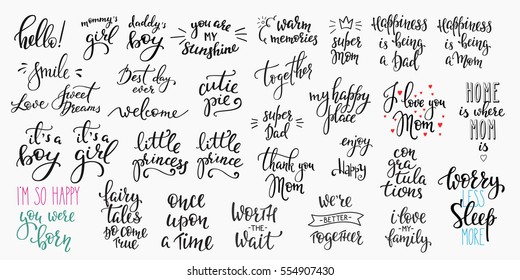 hello!
mommy's
girl
daddy's
boy
you are
MY
sunshine
warm
memories
super
Mom
Happiness
is being
a Dad
Happiness
is being
a Mom
smile
Love
Sweet
Dreams
Best day
ever
welcome
cutie
pie
together
super
Dad
my happy
place
I love you
Mom
HOME
is where
MOM
is
it's a
boy
it's a
girl
little
princess
little
prince
thank you
Mom
enjoy
Happy
con
gra
tula
tions
I'M SO HAPPY
you were
born
fairy
tales
DO COME
TRUE
once
upon
a Time
WORTH
-THE-
Wait
we're
-BETTER-
Together
i love
-MY-
family
worry
LESS
Sleep
MORE
shutterstock®
IMAGE ID: 554907430
www.shutterstock.com